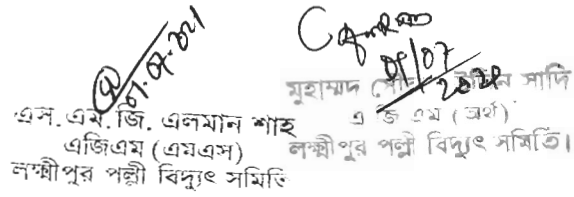 ০১.০৭.২০২১
এস. এম. জি. এলমান শাহ
এজিএম (এমএস)
লক্ষ্মীপুর পল্লী বিদ্যুৎ সমিতি
০১/০৭
মুহাম্মদ উদ্দিন সাদি
এ জি এম (অর্থ)
লক্ষ্মীপুর পল্লী বিদ্যুৎ সমিতি।